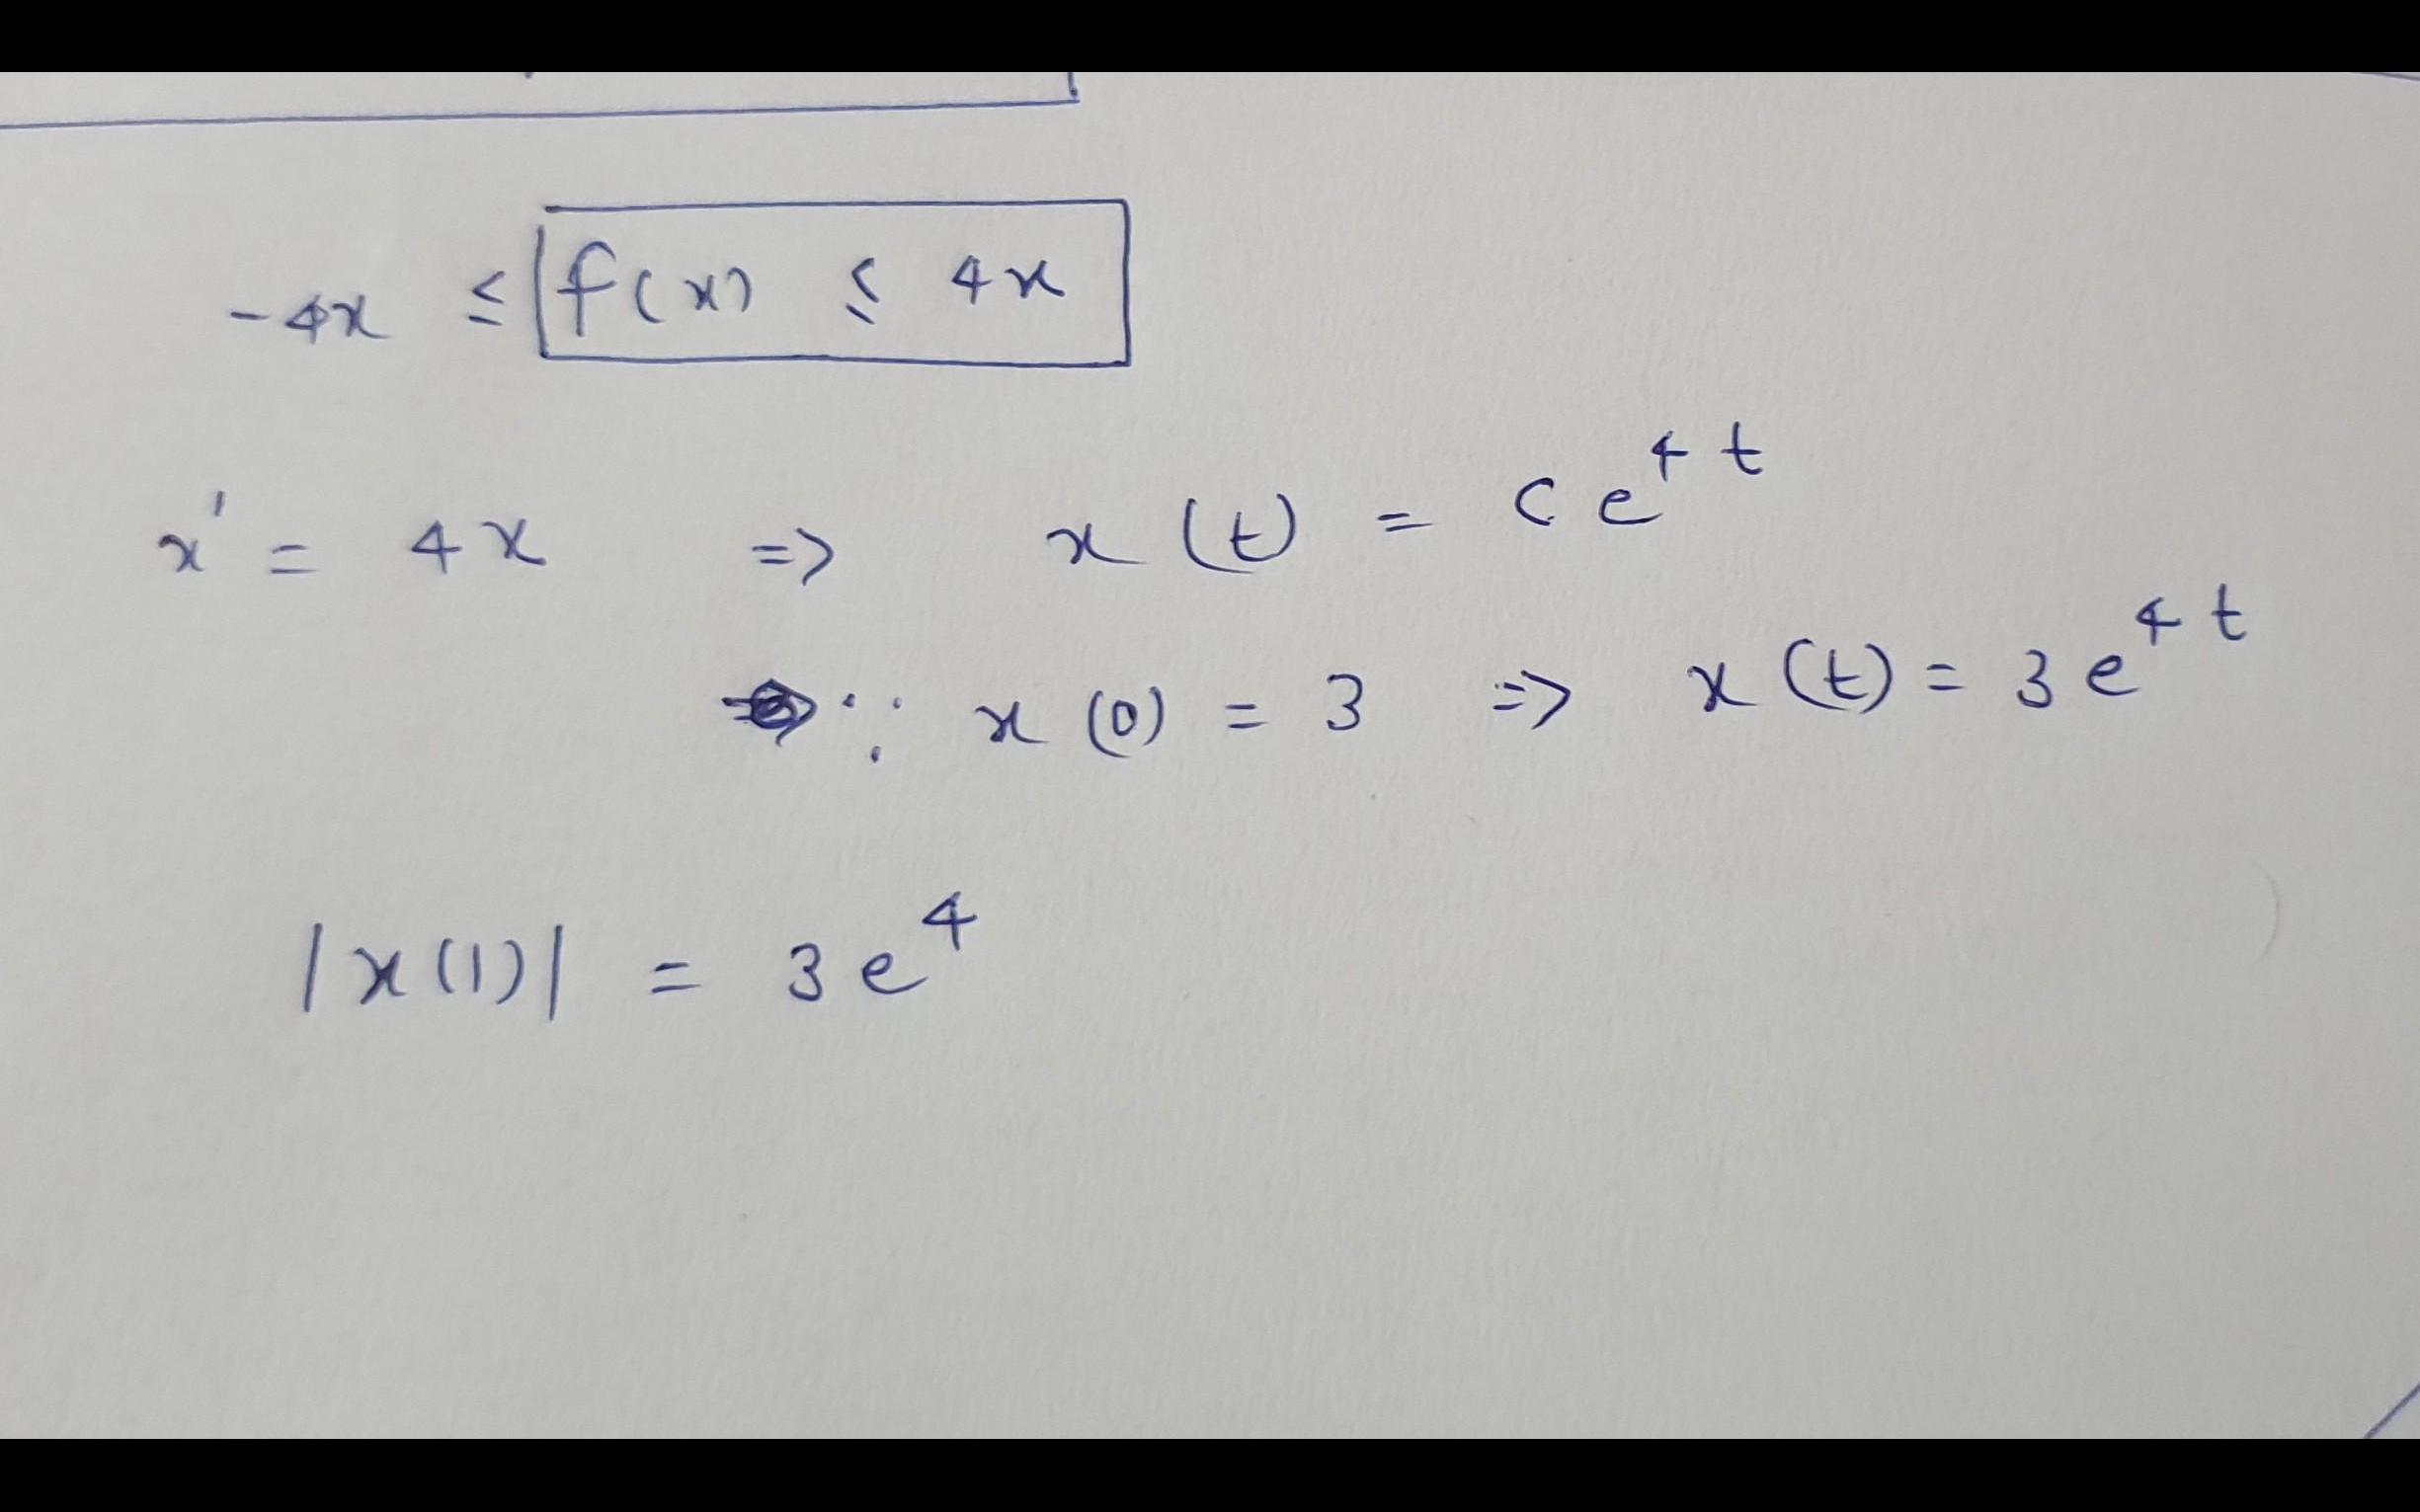 -4x ≤ f(x) ≤ 4x
x' = 4x => x(t) = c e^{4t}
∵ x(0) = 3 => x(t) = 3 e^{4t}
|x(1)| = 3 e^4